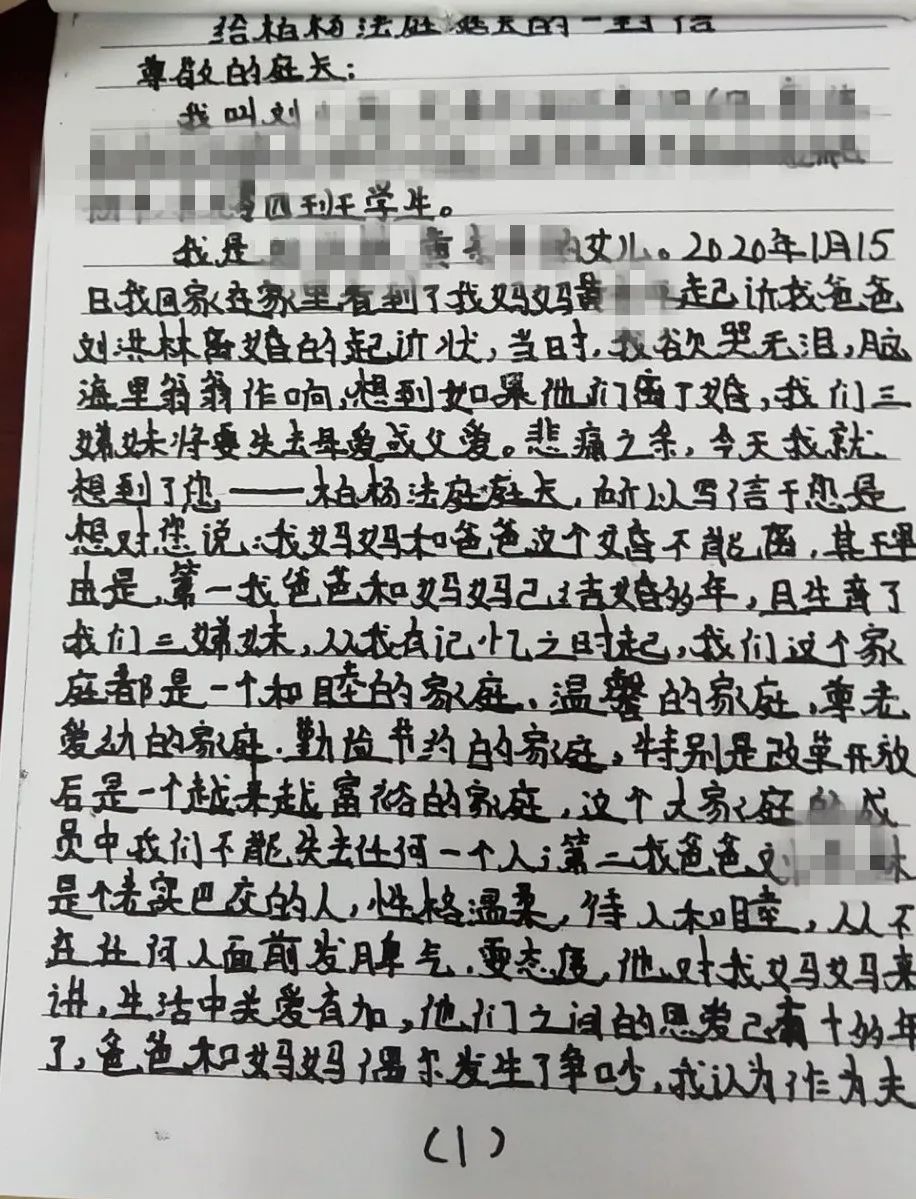 给柏杨法庭庭长的一封信
尊敬的庭长：
我叫刘
四到王学生。
我是 黄 的女儿。2020年1月15
日我回家在家里看到了我妈妈黄 起诉我爸爸
刘洪林离婚的起诉状，当时，我欲哭无泪，脑
海里翁翁作响，想到如果他们离了婚，我们三
娣妹将要失去母爱或父爱。悲痛之余，今天我就
想到了您——柏杨法庭庭长，所以写信于您是
想对您说：我妈妈和爸爸这个婚不能离，其理
由是，第一我爸爸和妈妈己结婚多年，且生育了
我们三娣妹，从我有记忆之日时起，我们这个家
庭都是一个和睦的家庭、温馨的家庭，尊老
爱幼的家庭．勤俭节约的家庭，特别是改革开放
后是一个越来越富裕的家庭，这个大家庭的成
员中我们不能失去任何一个人；第二我爸爸刘 林
是个老实巴交的人，性格温柔，待人和睦，从不
在任何人面前发脾气．耍态度，他对我妈妈来
讲，生活中关爱有加，他们之间的恩爱己有十多年
了，爸爸和妈妈偶尔发生了争吵，我认为作为夫
（1）